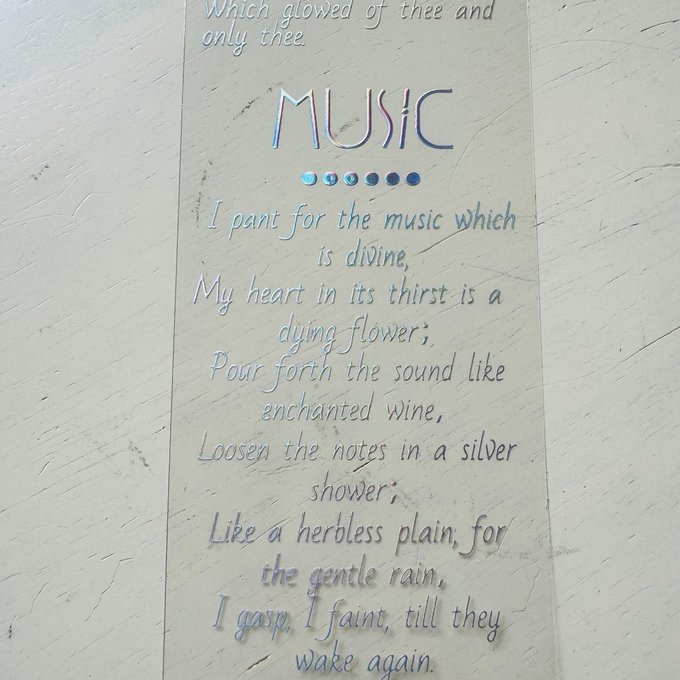 Which glowed of thee and
only thee.
MUSIC
I pant for the music which
is divine,
My heart in its thirst is a
dying flower;
Pour forth the sound like
enchanted wine,
Loosen the notes in a silver
shower;
Like a herbless plain, for
the gentle rain,
I gasp, I faint, till they
wake again.